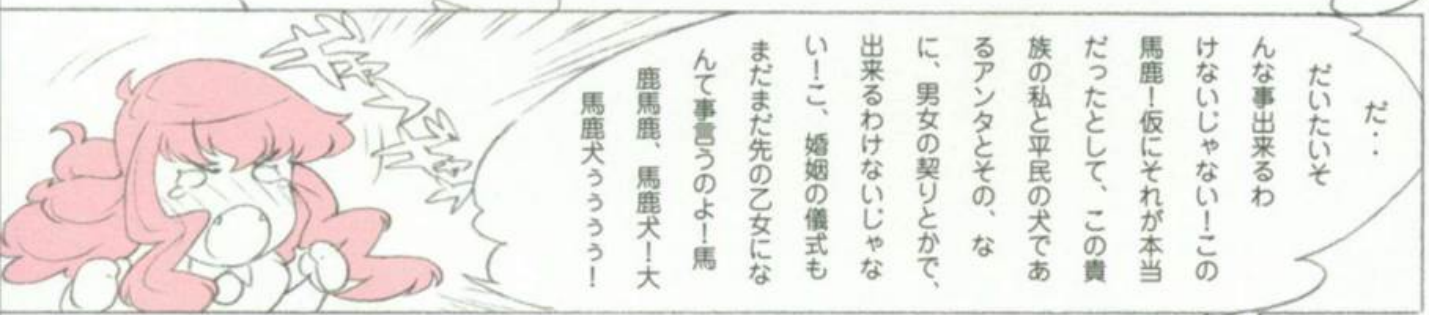 だ・・
だいたいそ
んな事出来るわ
けないじゃない！この
馬鹿！仮にそれが本当
だったとして、この貴
族の私と平民の犬であ
るアンタとその、な
に、男女の契りとかで、
出来るわけないじゃな
い！こ、婚姻の儀式も
まだまだ先の乙女にな
んて事言うのよ！馬
鹿馬鹿、馬鹿犬！大
馬鹿犬ぅぅぅぅ！
ギャー
ギャー